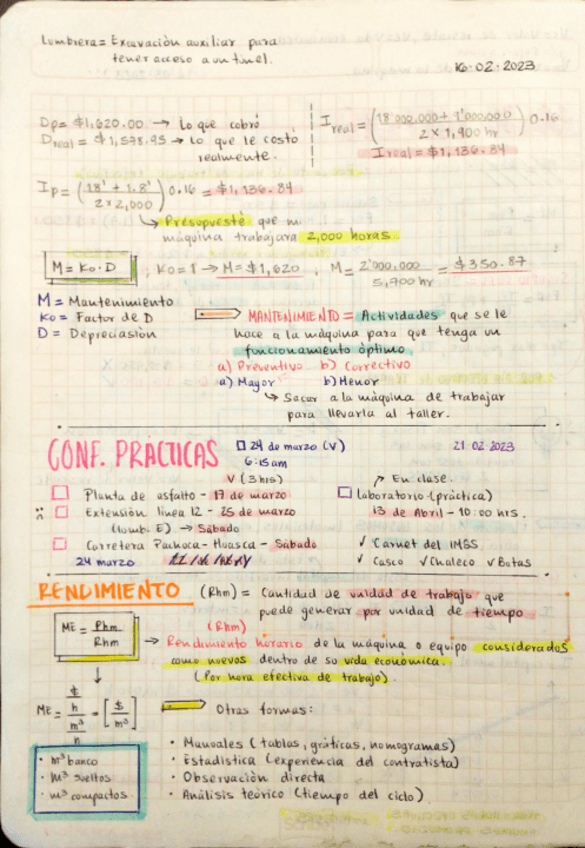 Lumbrera = Excavación auxiliar para
tener acceso a un tunel.
16·02·2023
Dp = $1,620.00 → Lo que cobró
Dreal = $1,578.95 → Lo que le costó
realmente.
Ireal = (18'000.000 + 1'000.000 / 2 x 1,900 hr) 0.16
Ireal = $1,136.84
Ip = (18' + 1.8' / 2 x 2,000) 0.16 = $1,136.84
↳ Presupuesté que mi
máquina trabajara 2,000 horas
M = Ko · D , Ko = 1 → M = $1,620 , M = 2'000.000 / 5,900 hr = $350.87
M = Mantenimiento
Ko = Factor de D
D = Depreciasión
MANTENIMIENTO = Actividades que se le
hace a la máquina para que tenga un
funcionamiento óptimo
a) Preventivo b) Correctivo
a) Mayor b) Menor
↳ Sacar a la máquina de trabajar
para llevarla al taller.
CONF. PRÁCTICAS
24 de marzo (V)
6:15am
21·02·2023
V (3 hrs)
Planta de asfalto - 17 de marzo
Extensión línea 12 - 25 de marzo
(lumb. E) → Sábado
Carretera Pachuca - Huasca - Sábado
24 marzo
↗ En clase.
laboratorio (práctica)
13 de Abril - 10:00 hrs.
✓ Carnet del IMSS
✓ Casco ✓ Chaleco ✓ Botas
RENDIMIENTO (Rhm) = Cantidad de unidad de trabajo que
puede generar por unidad de tiempo
ME = Phm / Rhm
(Rhm)
→ Rendimiento horario de la máquina o equipo considerados
como nuevos dentro de su vida económica.
(Por hora efectiva de trabajo).
↓
ME = $/h / m³/h = [$ / m³]
Otras formas:
• m³ banco
• m³ sueltos
• m³ compactos
• Manuales (tablas, gráficas, nomogramas)
• Estadística (experiencia del contratista)
• Observación directa
• Análisis teórico (tiempo del ciclo)